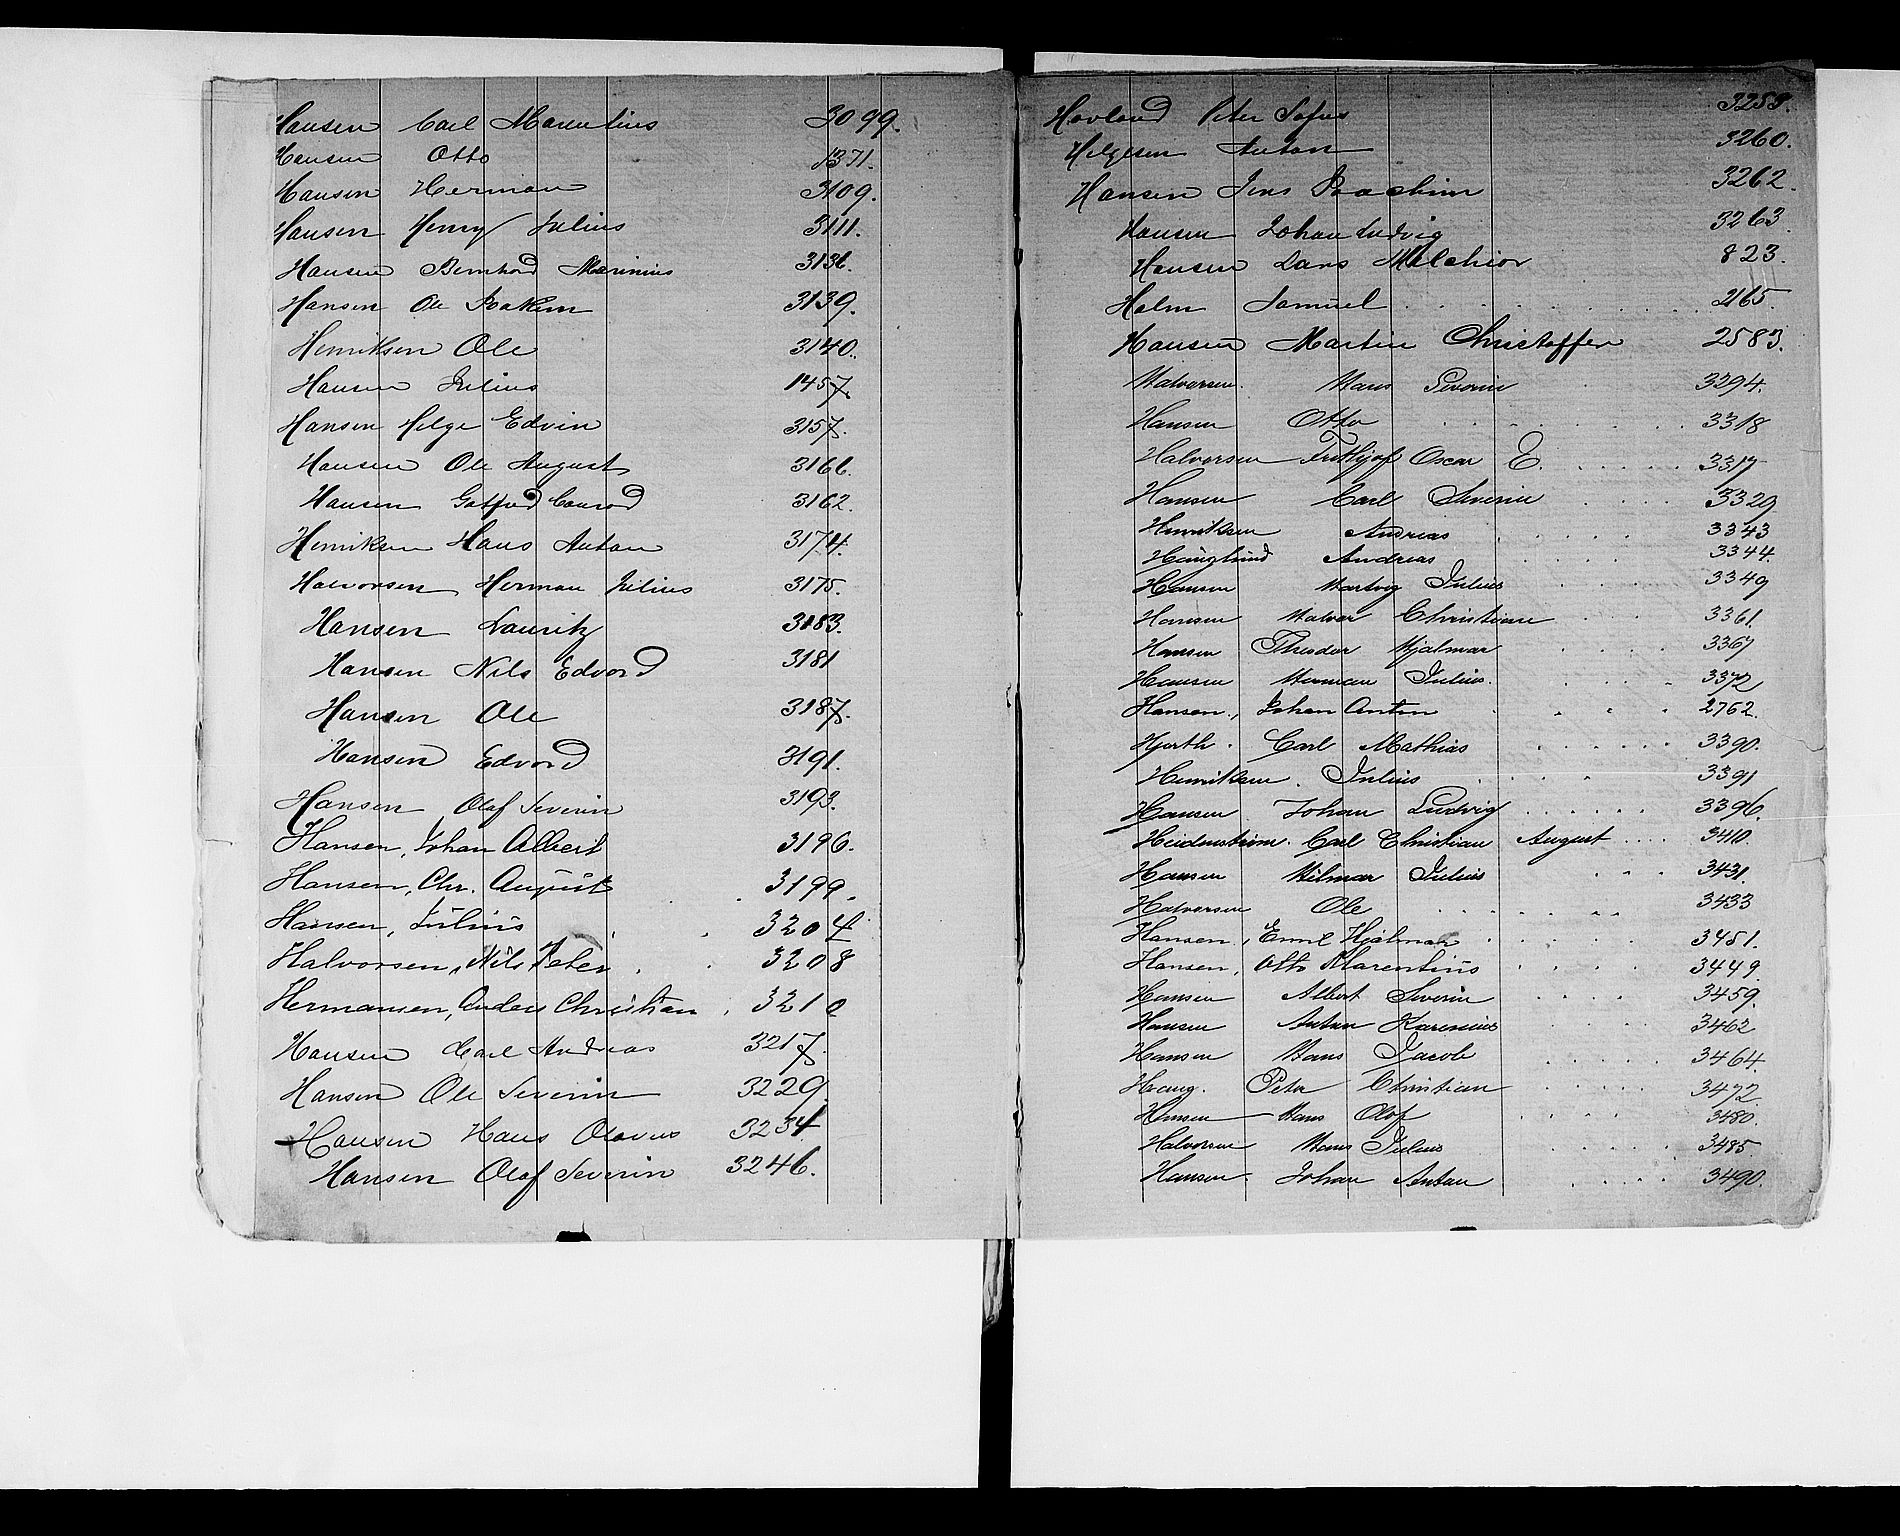 Hansen Carl Marentius 3099.
Hansen Otto 1371.
Hansen Herman 3109.
Hansen Henry Julius 3111.
Hansen Bernhard Marinius 3136.
Hansen Ole Joakim 3139.
Henriksen Ole 3140.
Hansen Julius 1457.
Hansen Helge Edvin 3157.
Hansen Ole August 3166.
Hansen Gotfred Conrad 3162.
Henriksen Hans Anton 3174.
Halvorsen Herman Julius 3175.
Hansen Lauritz 3183.
Hansen Nils Edvard 3181
Hansen Ole 3187.
Hansen Edvard 3191.
Hansen Olaf Severin 3193.
Hansen, Johan Albert 3196.
Hansen, Chr. August 3199.
Hansen, Julius 3204.
Halvorsen, Nils Peter 3208
Hermansen, Anders Christian 3210
Hansen Carl Andreas 3217.
Hansen Ole Severin 3229.
Hansen Hans Olavus 3234
Hansen Olaf Severin 3246.
Hovland Peter Sofus
Helgesen Anton 3260.
Hansen Jens Joachim 3262.
Hansen Johan Ludvig 3263
Hansen Lars Melchior 823.
Holm Samuel 2165.
Hansen Martin Christoffer 2583.
Halvorsen. Hans Severin 3294.
Hansen Otto 3318
Halvorsen Frithjof Oscar E. 3317
Hansen Carl Severin 3329
Henriksen Andreas 3343
Hauglund Andreas 3344.
Hansen Hartvig Julius 3349
Hansen Halvor Christian 3361.
Hansen Theodor Hjalmar 3367
Hansen Herman Julius. 3372
Hansen, Johan Anton 2762.
Hjorth. Carl Mathias 3390.
Henriksen. Julius 3391
Hansen Johan Ludvig 3396.
Heidenstrøm. Carl Christian August 3410.
Hansen Hilmar Julius 3431.
Halvorsen Ole 3433
Hansen, Emil Hjalmar 3451.
Hansen, Otto Marentius 3449
Hansen Albert Severin 3459.
Hansen Anton Karenius 3462
Hansen Hans Jacob 3464.
Haug. Peter Christian 3472
Hansen Hans Olof 3480.
Halvorsen Hans Julius 3485.
Hansen. Johan Anton 3490.